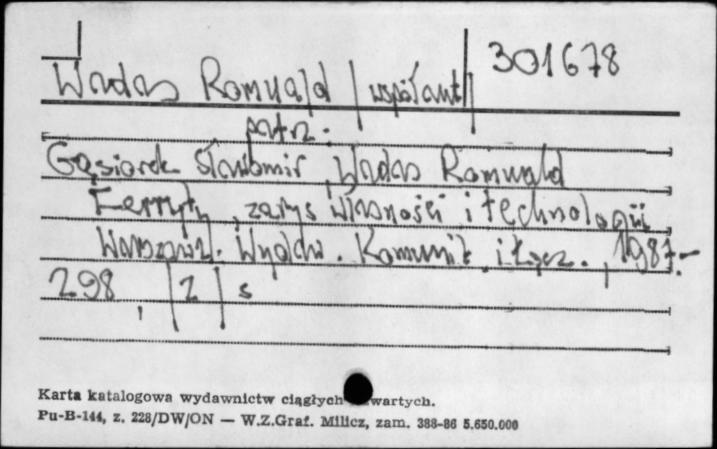 301678
Wadas Romuald /współaut/
patrz:
Gąsiorek Sławomir, Wadas Romuald
Ferryty, zarys własności i technologii
Warszawa. Wydaw. Komunik. i Łącz., 1987.-
298, /2/ s
Karta katalogowa wydawnictw ciągłych wartych.
Pu-B-144, z. 228/DW/ON — W.Z.Graf. Milicz, zam. 388-86 5.650.000